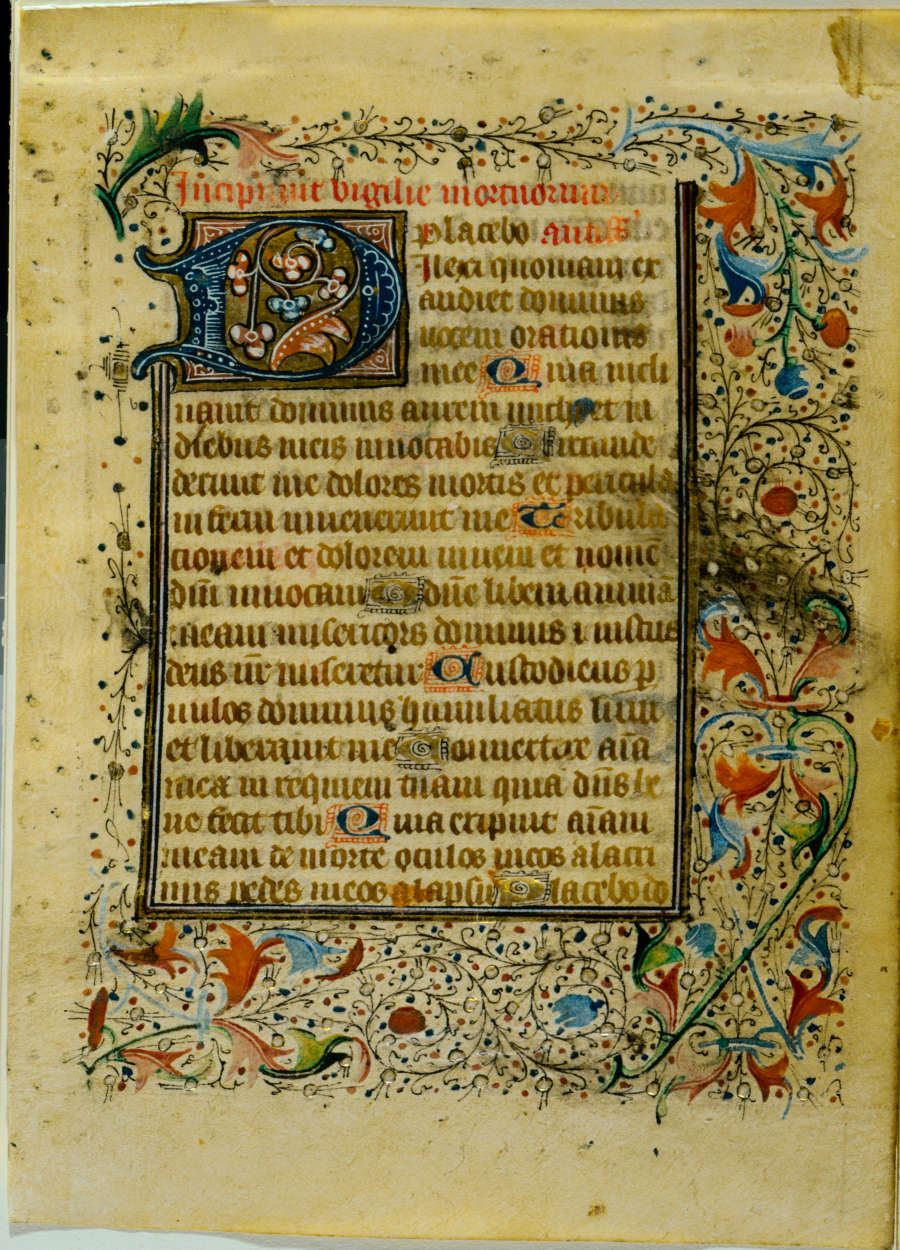 Incipiunt vigilie mortuorum
Placebo. antiᵃ.
Dilexi quoniam ex
audiet dominus
uocem orationis
mee Quia incli
nauit dominus aurem michi et in
diebus meis inuocabo Circumde
derunt me dolores mortis et pericula
inferni inuenerunt me Tribula
cionem et dolorem inueni et nomē
dn̄i inuocaui O dn̄e libera animā
meam misericors dominus i iustus
deus nr̄ miseretur Custodiens p
uulos dominus humiliatus sum
et liberauit me Conuertere aīa
mea in requiem tuam quia dn̄s be
ne fecit tibi Quia eripuit aīam
meam de morte oculos meos a lacri
mis pedes meos a lapsu Placebo do